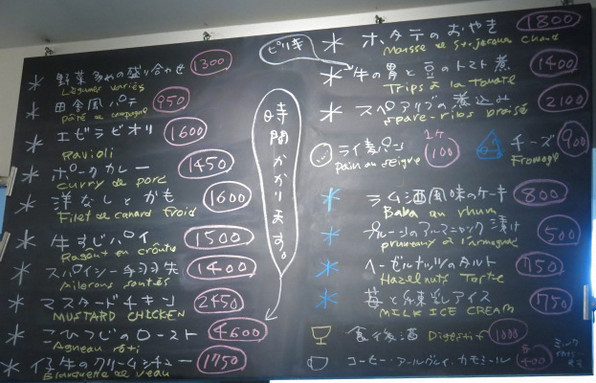 野菜多めの盛り合わせ 1300
Légumes variés
田舎風パテ 950
pâté de campagne
エビラビオリ 1600
Ravioli
ポークカレー 1450
curry de porc
洋なしとかも 1600
Filet de canard froid
牛すじパイ 1500
Ragout en croûte
スパイシー手羽先 1400
Ailerons sautés
マスタードチキン 2450
MUSTARD CHICKEN
こひつじのロースト 4600
Agneau rôti
仔牛のクリームシチュー 1750
Blanquette de veau
時間かかります。
ホタテのおやき 1800
Mousse de St. Jacques chaud
ピリ辛
牛の胃と豆のトマト煮 1400
Trips à la tomate
スペアリブの煮込み 2100
spare-ribs braisé
ライ麦パン 1ケ 100
pain au seigre
チーズ 900
Fromage
ラム酒風味のケーキ 800
Baba au rhum
プルーンのアルマニャック漬け 500
pruneaux à l'armagnac
ヘーゼルナッツのタルト 750
Hazelnuts Torte
苺と練乳アイス 750
MILK ICE CREAM
食後酒 Digestif 1000
コーヒー・アールグレイ・カモミール 400